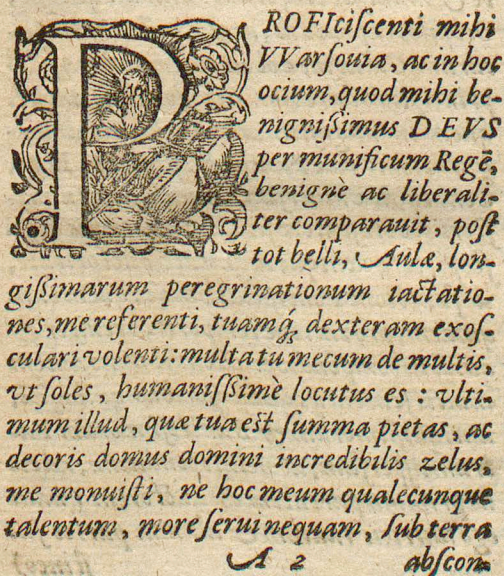 PROFIciſcenti mihi
VVarſouia, ac in hoc
ocium, quod mihi be-
nignißimus DEVS
per munificum Regē,
benignè ac liberali-
ter comparauit, poſt
tot belli, Aulæ, lon-
gißimarum peregrinationum iactatio-
nes, me referenti, tuamq́; dexteram exoſ-
culari volenti: multa tu mecum de multis,
vt ſoles, humaniſſimè locutus es: vlti-
mum illud, quæ tua eſt ſumma pietas, ac
decoris domus domini incredibilis zelus,
me monuiſti, ne hoc meum qualecunque
talentum, more ſerui nequam, ſub terra
A 2 abſcon-